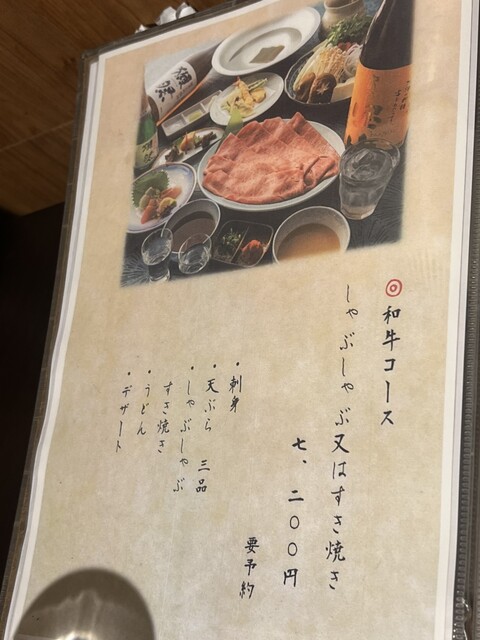 ◎和牛コース
しゃぶしゃぶ又はすき焼き
七、二〇〇円
要予約
・刺身
・天ぷら 三品
・しゃぶしゃぶ
すき焼き
・うどん
・デザート
獺祭